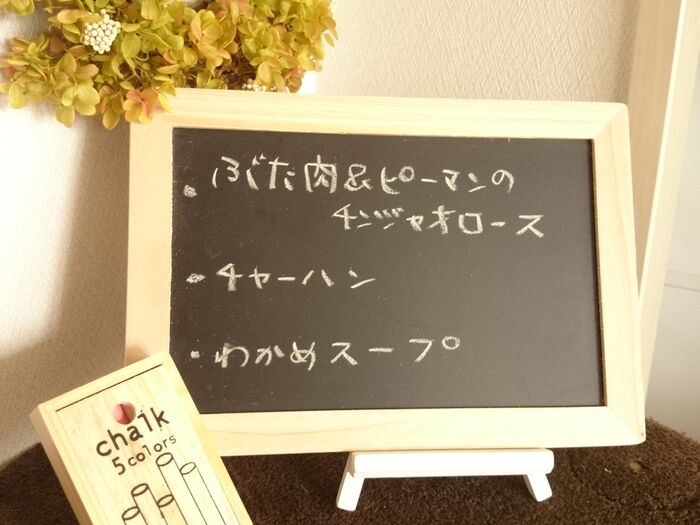 ・ぶた肉&ピーマンの
チンジャオロース
・チャーハン
・わかめスープ
chalk
5colors